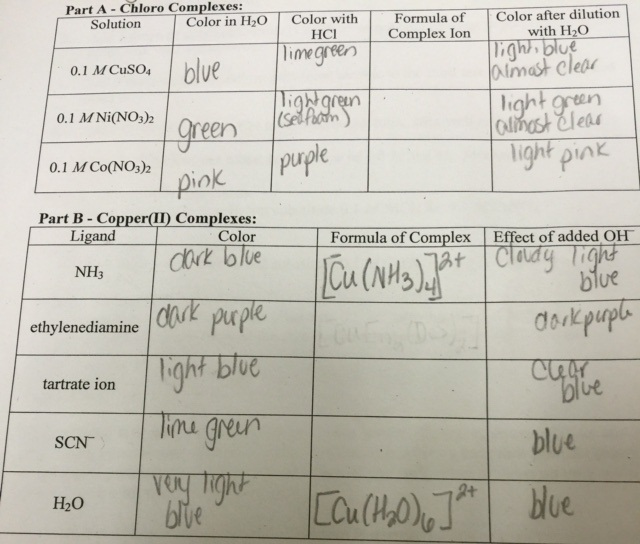 Part A - Chloro Complexes:
Solution Color in H₂O Color with HCl Formula of Complex Ion Color after dilution with H₂O
0.1 M CuSO₄ blue lime green light blue almost clear
0.1 M Ni(NO₃)₂ green light green (seafoam) light green almost clear
0.1 M Co(NO₃)₂ pink purple light pink
Part B - Copper(II) Complexes:
Ligand Color Formula of Complex Effect of added OH⁻
NH₃ dark blue [Cu(NH₃)₄]²⁺ Cloudy light blue
ethylenediamine dark purple dark purple
tartrate ion light blue Clear blue
SCN⁻ lime green blue
H₂O very light blue [Cu(H₂O)₆]²⁺ blue